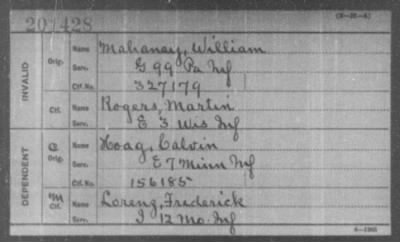 (3-25-4)
201428
INVALID
Orig.
Name Mahaney, William
Serv. G 99 Pa Inf
Ctf. No. 327179
Ctf.
Name Rogers, Martin
Serv. E 3 Wis Inf
DEPENDENT
Orig.
Name Hoag, Calvin
Serv. E 7 Minn Inf
Ctf. No. 156185
Ctf.
Name Lorenz, Frederick
Serv. I 12 Mo. Inf